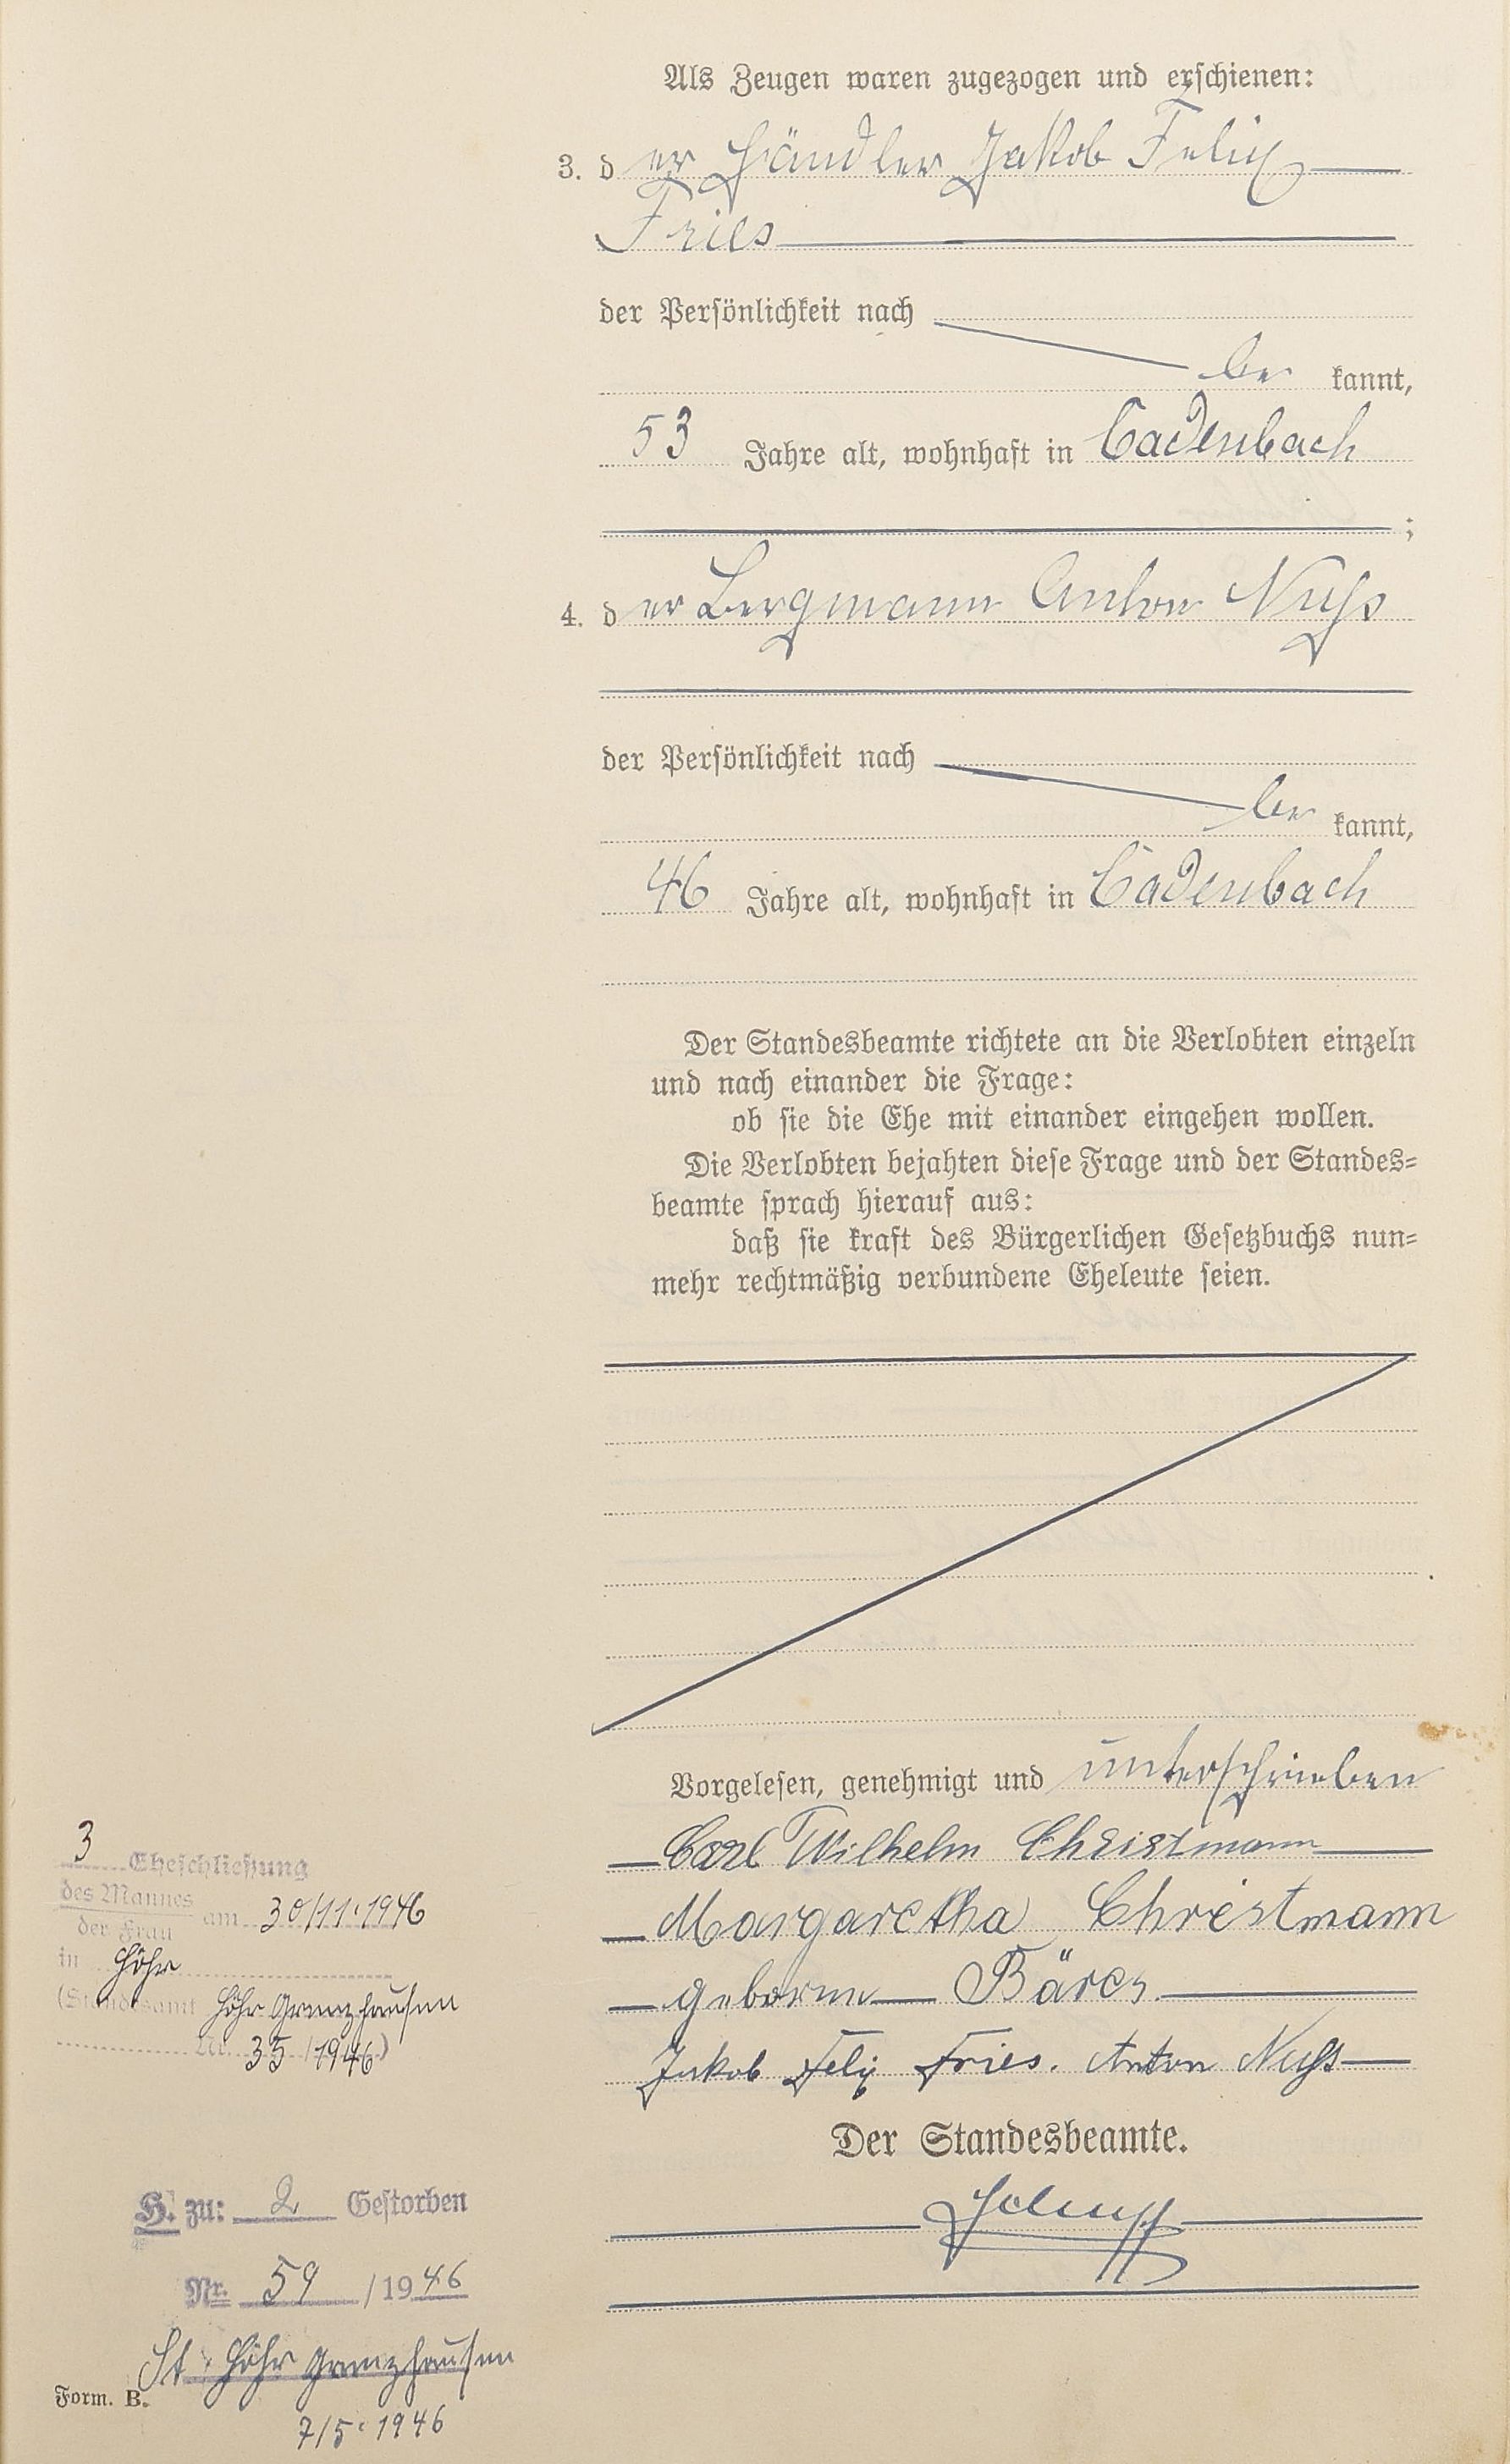 Als Zeugen waren zugezogen und erschienen:
3. der Händler Jakob Felix
Fries
der Persönlichkeit nach
be kannt,
53 Jahre alt, wohnhaft in Cadenbach
;
4. der Bergmann Anton Nuſs
der Persönlichkeit nach
be kannt,
46 Jahre alt, wohnhaft in Cadenbach
Der Standesbeamte richtete an die Verlobten einzeln
und nach einander die Frage:
ob sie die Ehe mit einander eingehen wollen.
Die Verlobten bejahten diese Frage und der Standes-
beamte sprach hierauf aus:
daß sie kraft des Bürgerlichen Gesetzbuchs nun-
mehr rechtmäßig verbundene Eheleute seien.
Vorgelesen, genehmigt und unterschrieben
Carl Wilhelm Christmann
Margaretha Christmann
geborene
Jakob Felix Fries. Anton Nuſs
Der Standesbeamte.
3 Eheschließung
des Mannes
der Frau am 30/11.1946
in Höhr
(Standesamt Höhr Grenzhausen
Nr. 35/1946)
H. zu: 2 Gestorben
Nr. 59 / 1946
St. Höhr Grenzhausen
Form. B.
7/5.1946